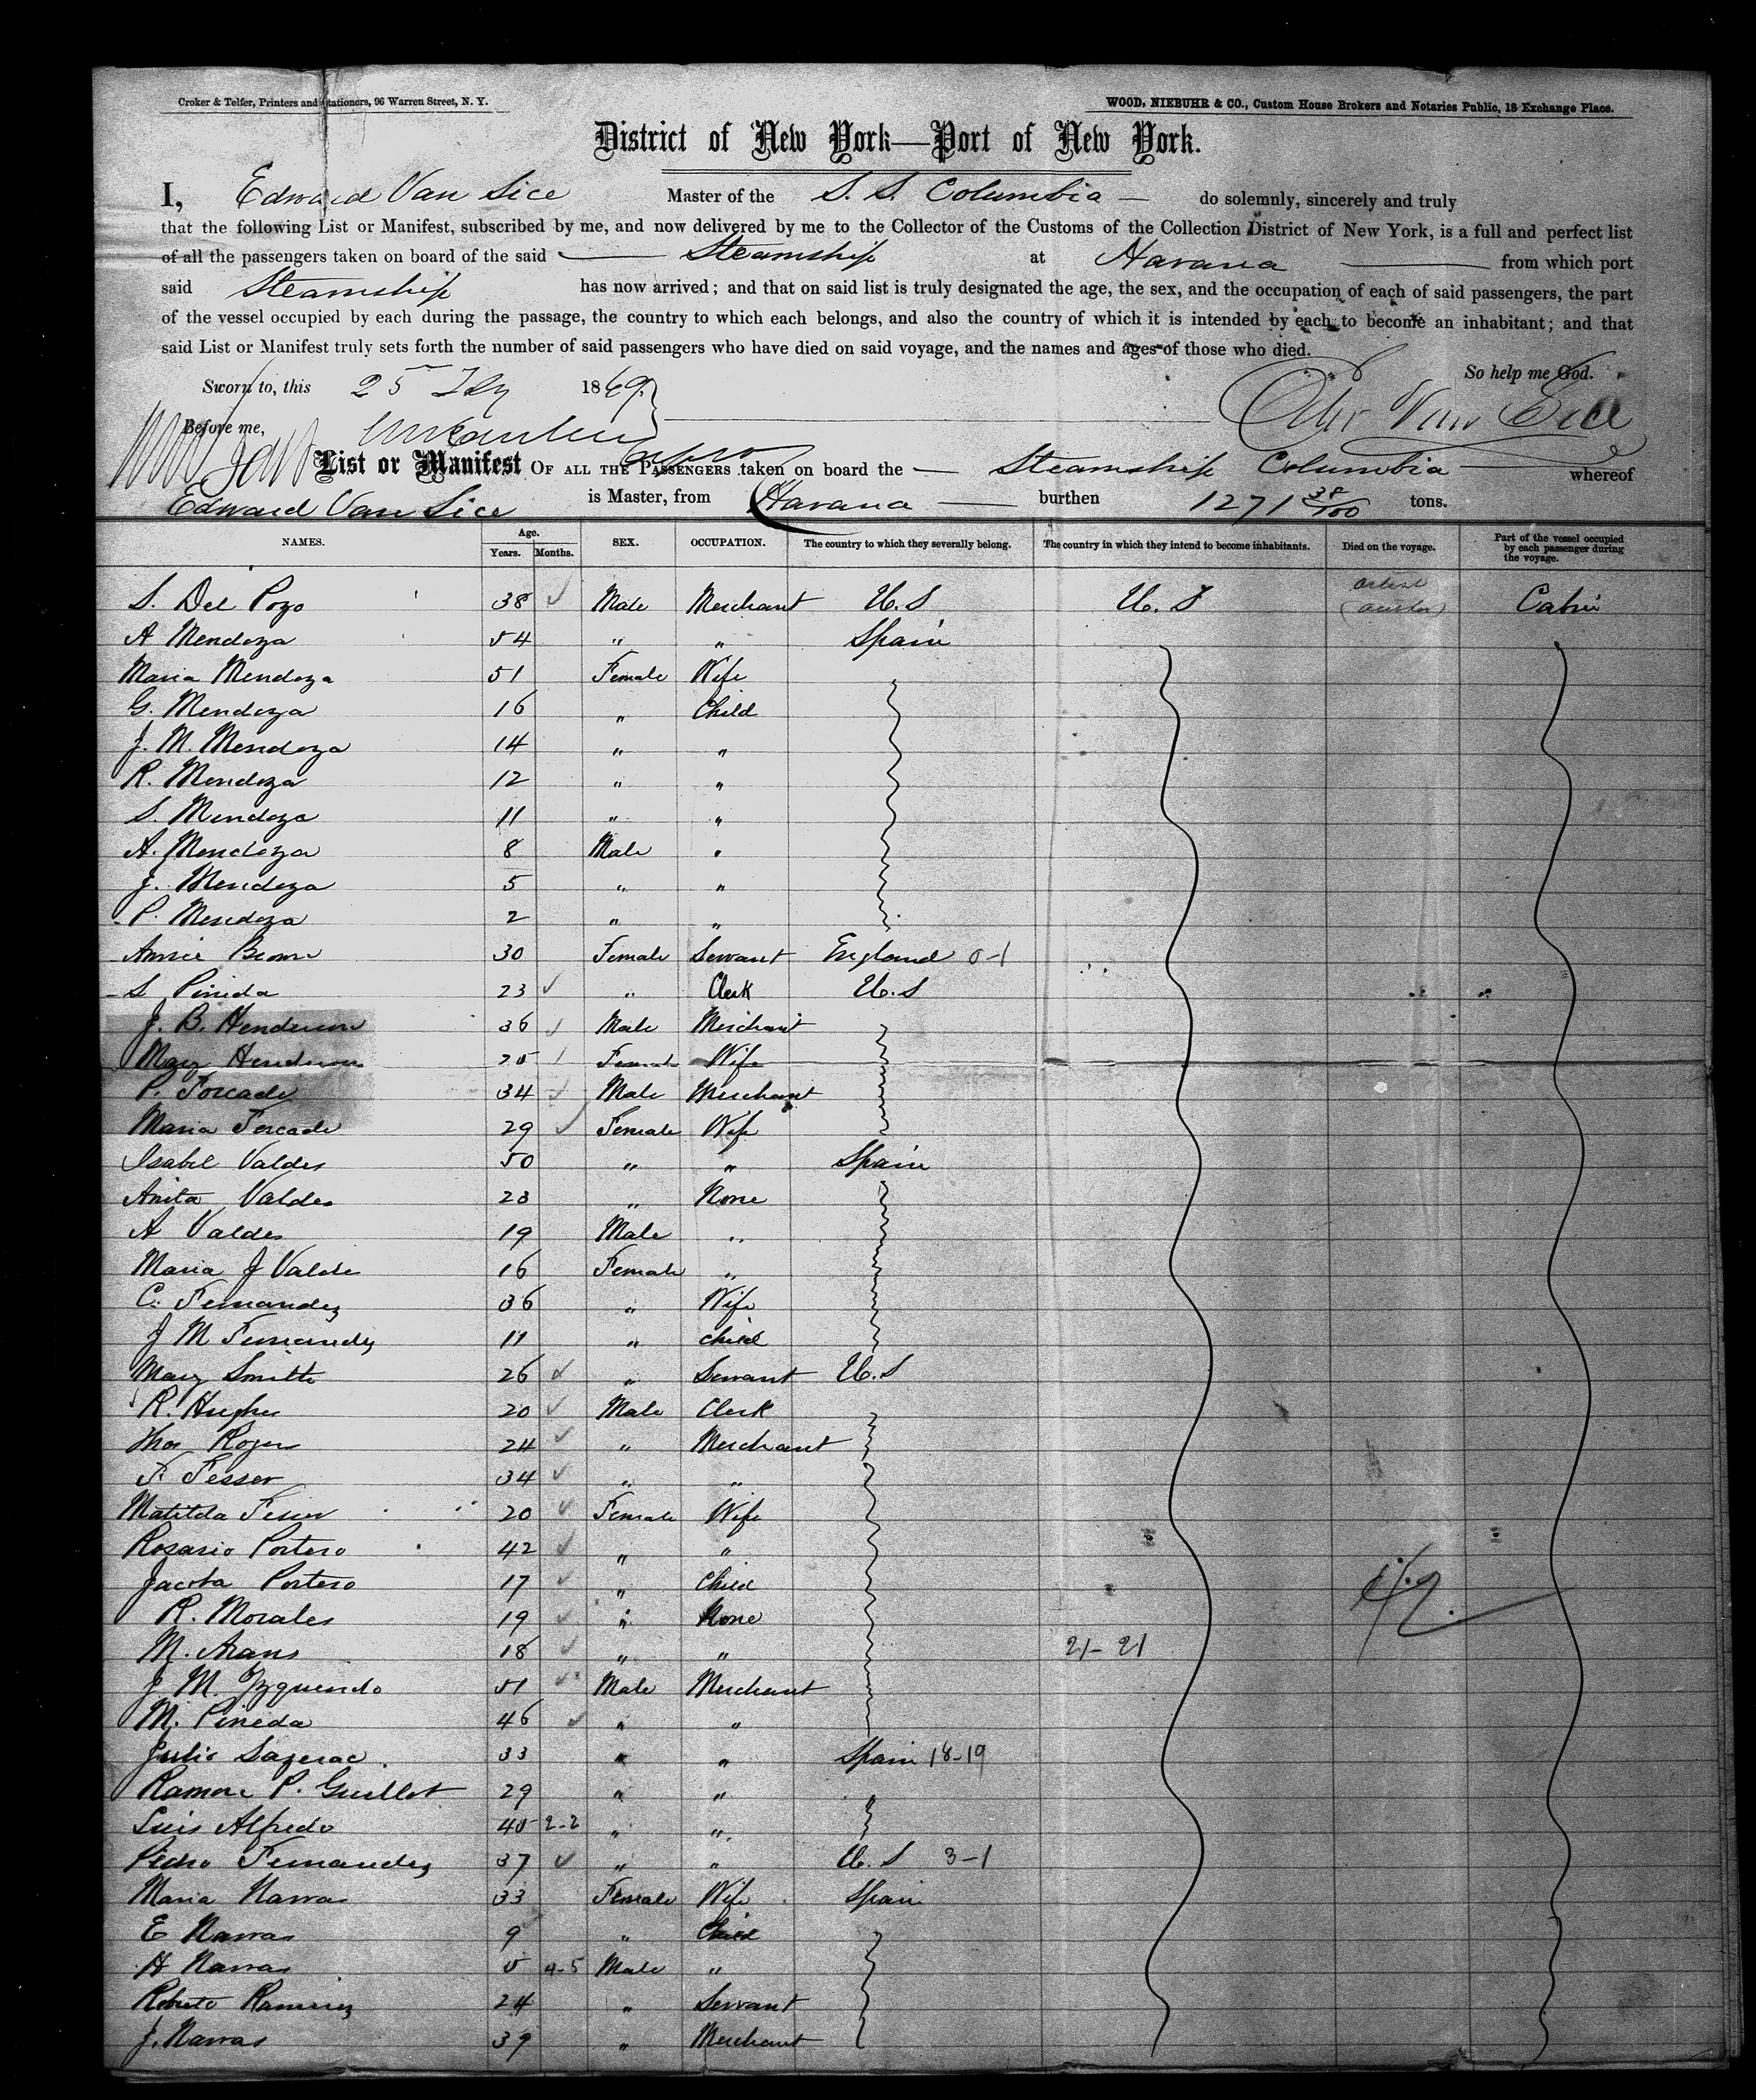 Croker & Telfer, Printers and Stationers, 96 Warren Street, N. Y.
WOOD, NIEBUHR & CO., Custom House Brokers and Notaries Public, 18 Exchange Place.
District of New York—Port of New York.
I, Edward Van Sice Master of the S. S. Columbia — do solemnly, sincerely and truly
that the following List or Manifest, subscribed by me, and now delivered by me to the Collector of the Customs of the Collection District of New York, is a full and perfect list
of all the passengers taken on board of the said — Steamship at Havana — from which port
said Steamship has now arrived; and that on said list is truly designated the age, the sex, and the occupation of each of said passengers, the part
of the vessel occupied by each during the passage, the country to which each belongs, and also the country of which it is intended by each to become an inhabitant; and that
said List or Manifest truly sets forth the number of said passengers who have died on said voyage, and the names and ages of those who died.
So help me God.
Sworn to, this 25 1869
Edw Van Sice
Before me,
List or Manifest OF ALL THE PASSENGERS taken on board the — Steamship Columbia — whereof
Edward Van Sice is Master, from Havana — burthen 1271 38/100 tons.
NAMES. Age. Years. Months. SEX. OCCUPATION. The country to which they severally belong. The country in which they intend to become inhabitants. Died on the voyage. Part of the vessel occupied by each passenger during the voyage.
S. Del Pozo 38 Male Merchant U. S U. S Cabin
A Mendoza 54 " " Spain
Maria Mendoza 51 Female Wife
G. Mendoza 16 " Child
J. M. Mendoza 14 " "
R. Mendoza 12 " "
S. Mendoza 11 " "
A. Mendoza 8 Male "
J. Mendoza 5 " "
P. Mendoza 2 " "
Annie Brown 30 Female Servant England 0-1
S Pineda 23 " Clerk U. S
J. B. Henderson 36 Male Merchant
Mary Henderson 25 Female Wife
P. Forcade 34 Male Merchant
Maria Forcade 29 Female Wife
Isabel Valdes 50 " " Spain
Anita Valdes 23 " None
A Valdes 19 Male "
Maria J Valdes 16 Female "
C. Fernandez 36 " Wife
J M Fernandez 11 " child
Mary Smith 26 " Servant U. S
R. Hughes 20 Male Clerk
Thos Rogers 24 " Merchant
F. Fesser 34 " "
Matilda Fesser 20 Female Wife
Rosario Portero 42 " "
Jacoba Portero 17 " Child
R. Morales 19 " None
M. Arans 18 " " 21-21
J. M. Yzquierdo 51 Male Merchant
M. Pineda 46 " "
Julio Sazerac 33 " " Spain 18-19
Ramon P. Guillot 29 " "
Luis Alfredo 40 2-2 " "
Pedro Fernandez 37 " " U. S 3-1
Maria Navras 33 Female Wife Spain
E Navras 9 " Child
H Navras 5 4-5 Male "
Roberto Ramirez 24 " Servant
J. Navras 39 " Merchant